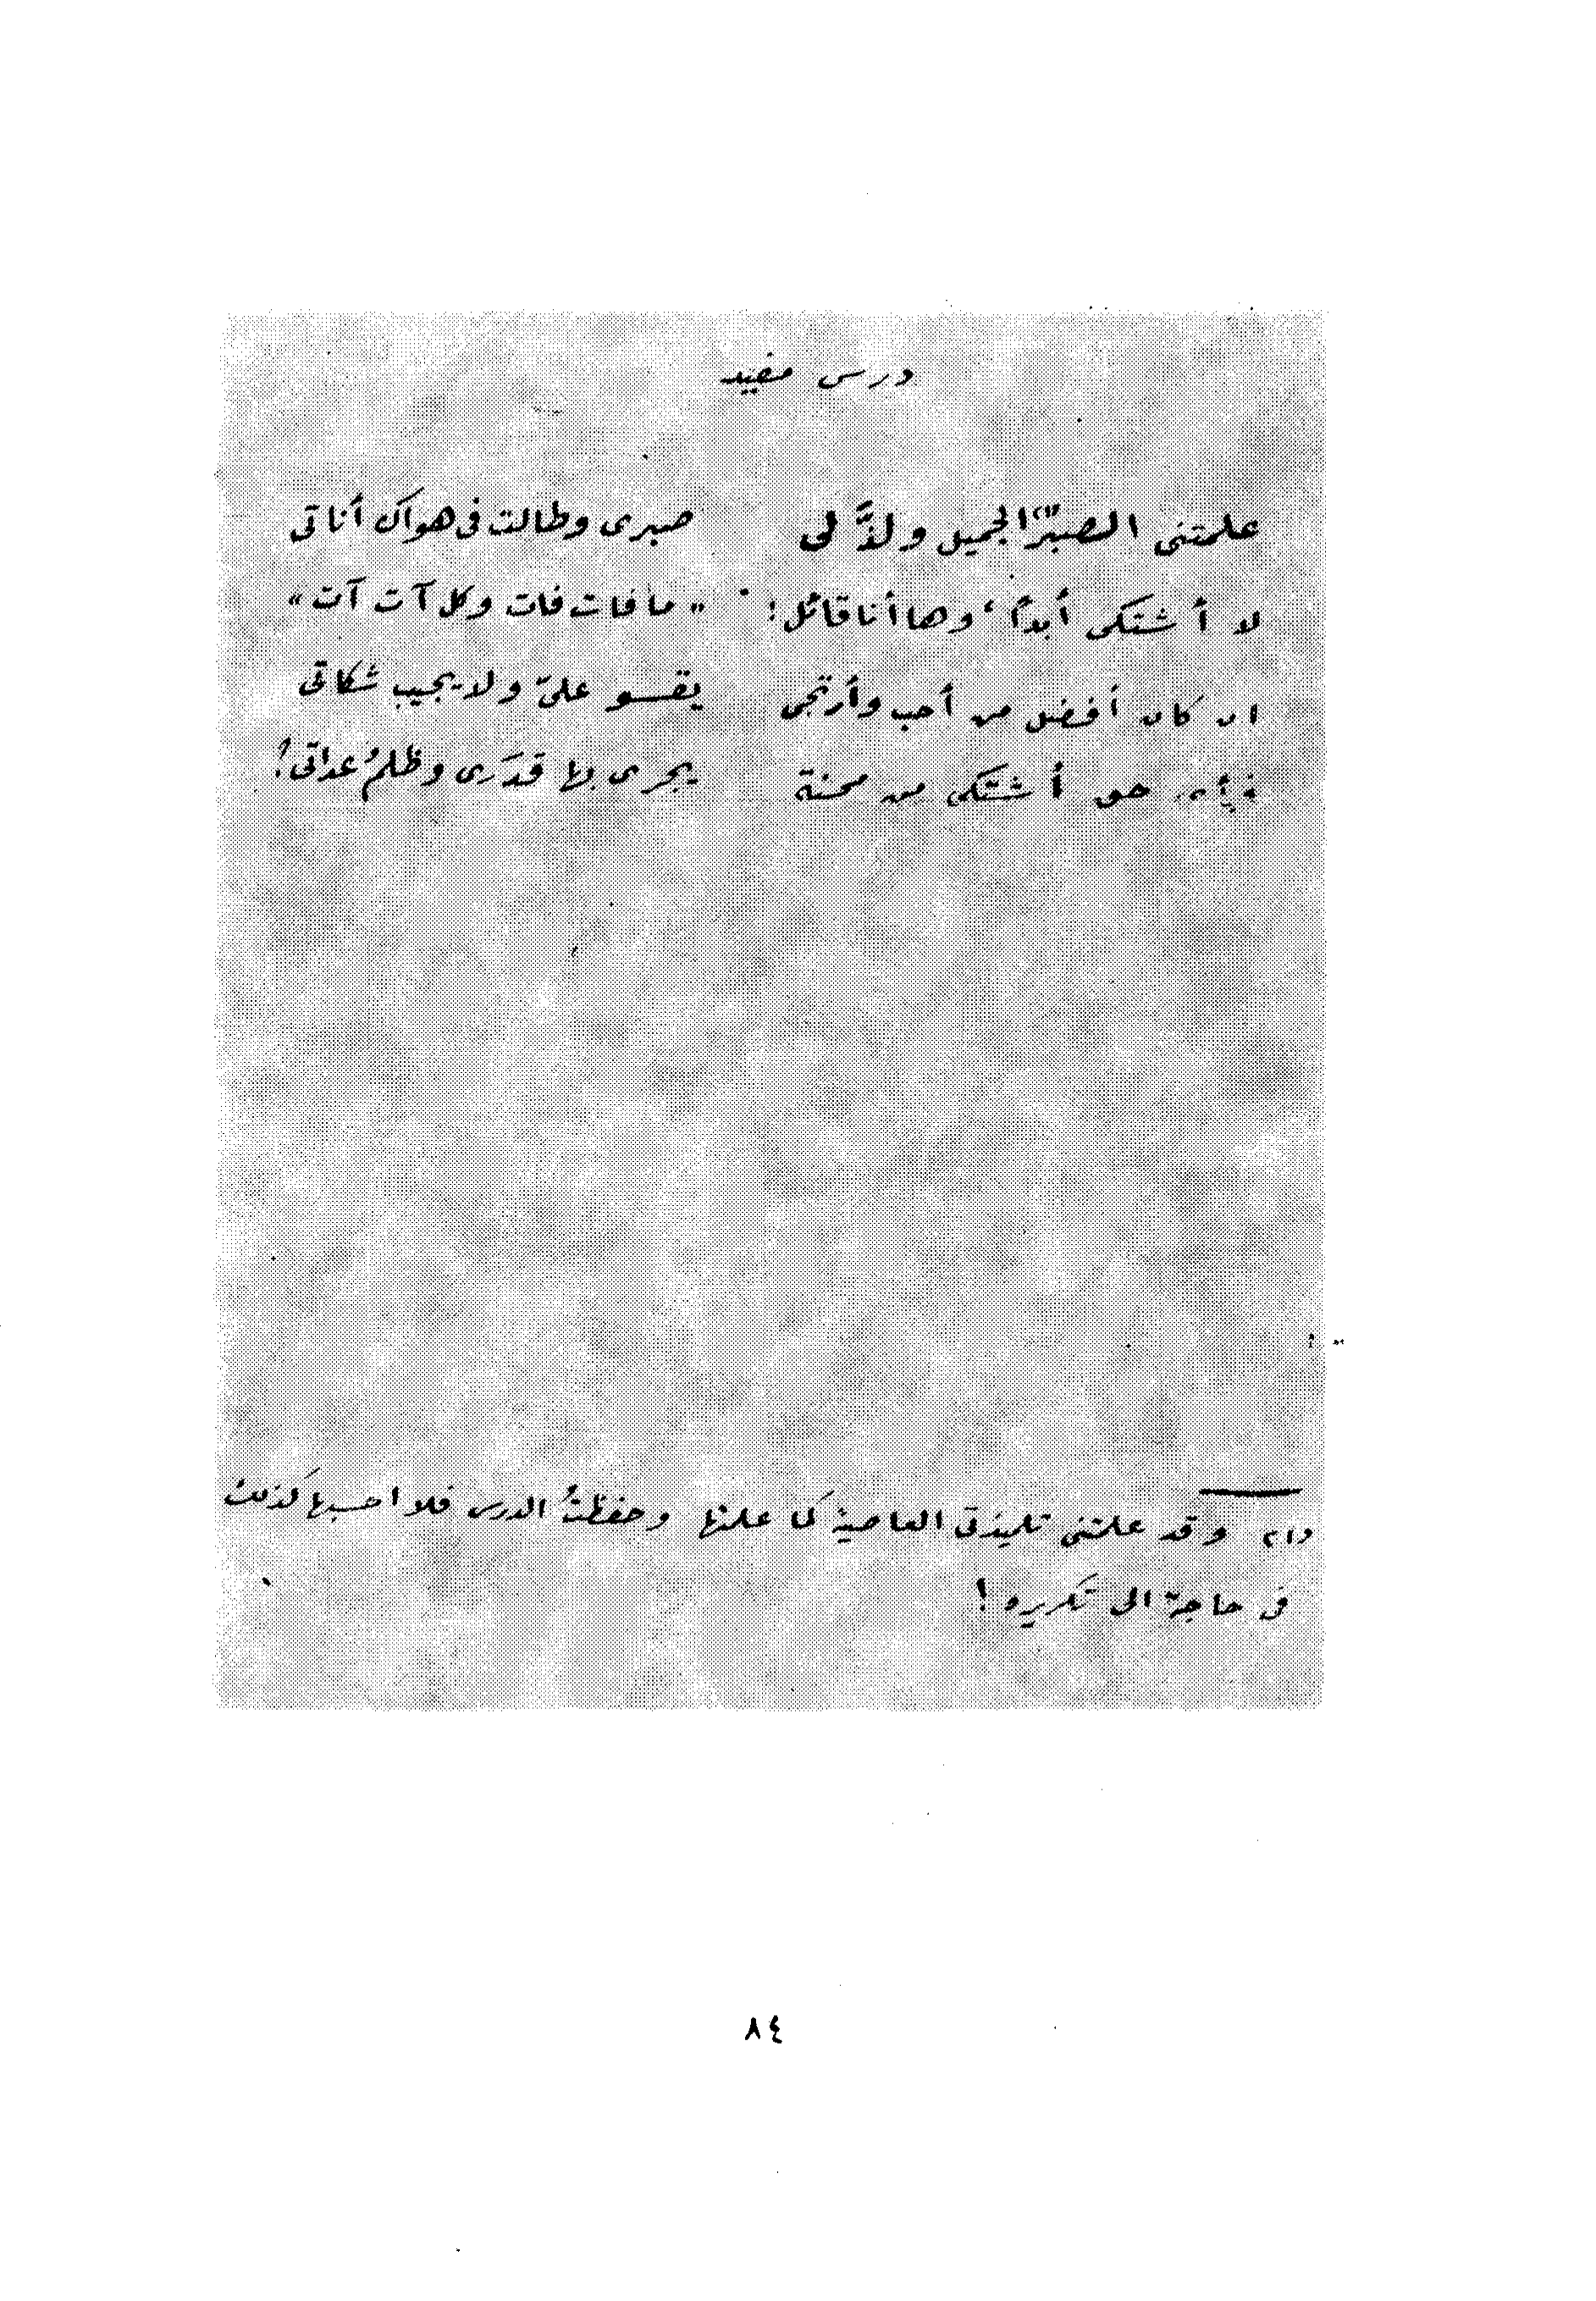 درس مفيد
علمتنى الصبرَ"١" الجميل ولذَّ لى صبرى وطالت فى هواك أناتى
لا أشتكى أبداً، وها أنا قائل: "ما فات فات وكل آت آت"
ان كان أفضل من أحب وأرتجى يقسو علىّ ولا يجيب شكاتى
فبأى حق أشتكى من محنة يجرى بها قدَرى وظلمُ عداتى؟
(١) وقد علمتنى تلميذتى العاصية كما علمتها وحفظتُ الدرس فلا احسبها كذلك
فى حاجة الى تكريره!
٨٤